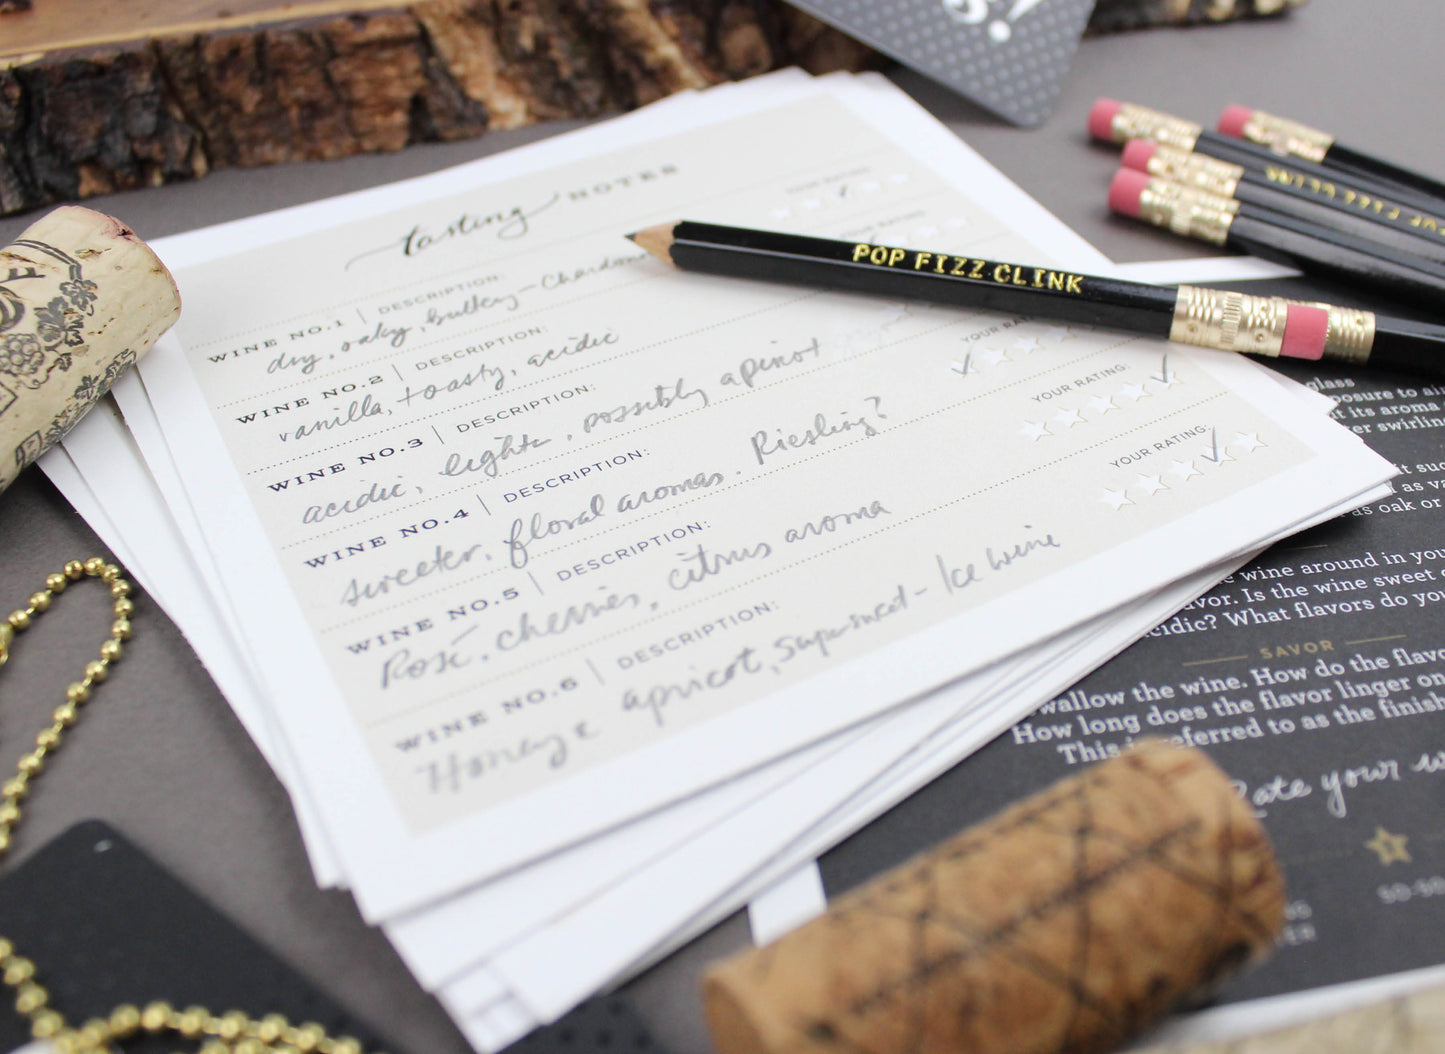 5!
tasting NOTES
YOUR RATING:
WINE NO.1 | DESCRIPTION:
dry, oaky, buttery - Chardonn
YOUR RATING
WINE NO.2 | DESCRIPTION:
vanilla, toasty, acidic
WINE NO.3 | DESCRIPTION:
acidic, light, possibly a pinot
YOUR RA
WINE NO.4 | DESCRIPTION:
sweeter, floral aromas. Riesling?
YOUR RATING:
WINE NO.5 | DESCRIPTION:
Rosé, cherries, citrus aroma
YOUR RATING:
WINE NO.6 | DESCRIPTION:
Honey & apricot, super sweet - Ice wine
POP FIZZ CLINK
POP FIZZ CLINK
glass
posure to air
t its aroma
ter swirling
it suc
as va
as oak or
wine around in you
avor. Is the wine sweet
cidic? What flavors do you
SAVOR
wallow the wine. How do the flavo
How long does the flavor linger on
This is referred to as the finish
Rate your w
1
50-50